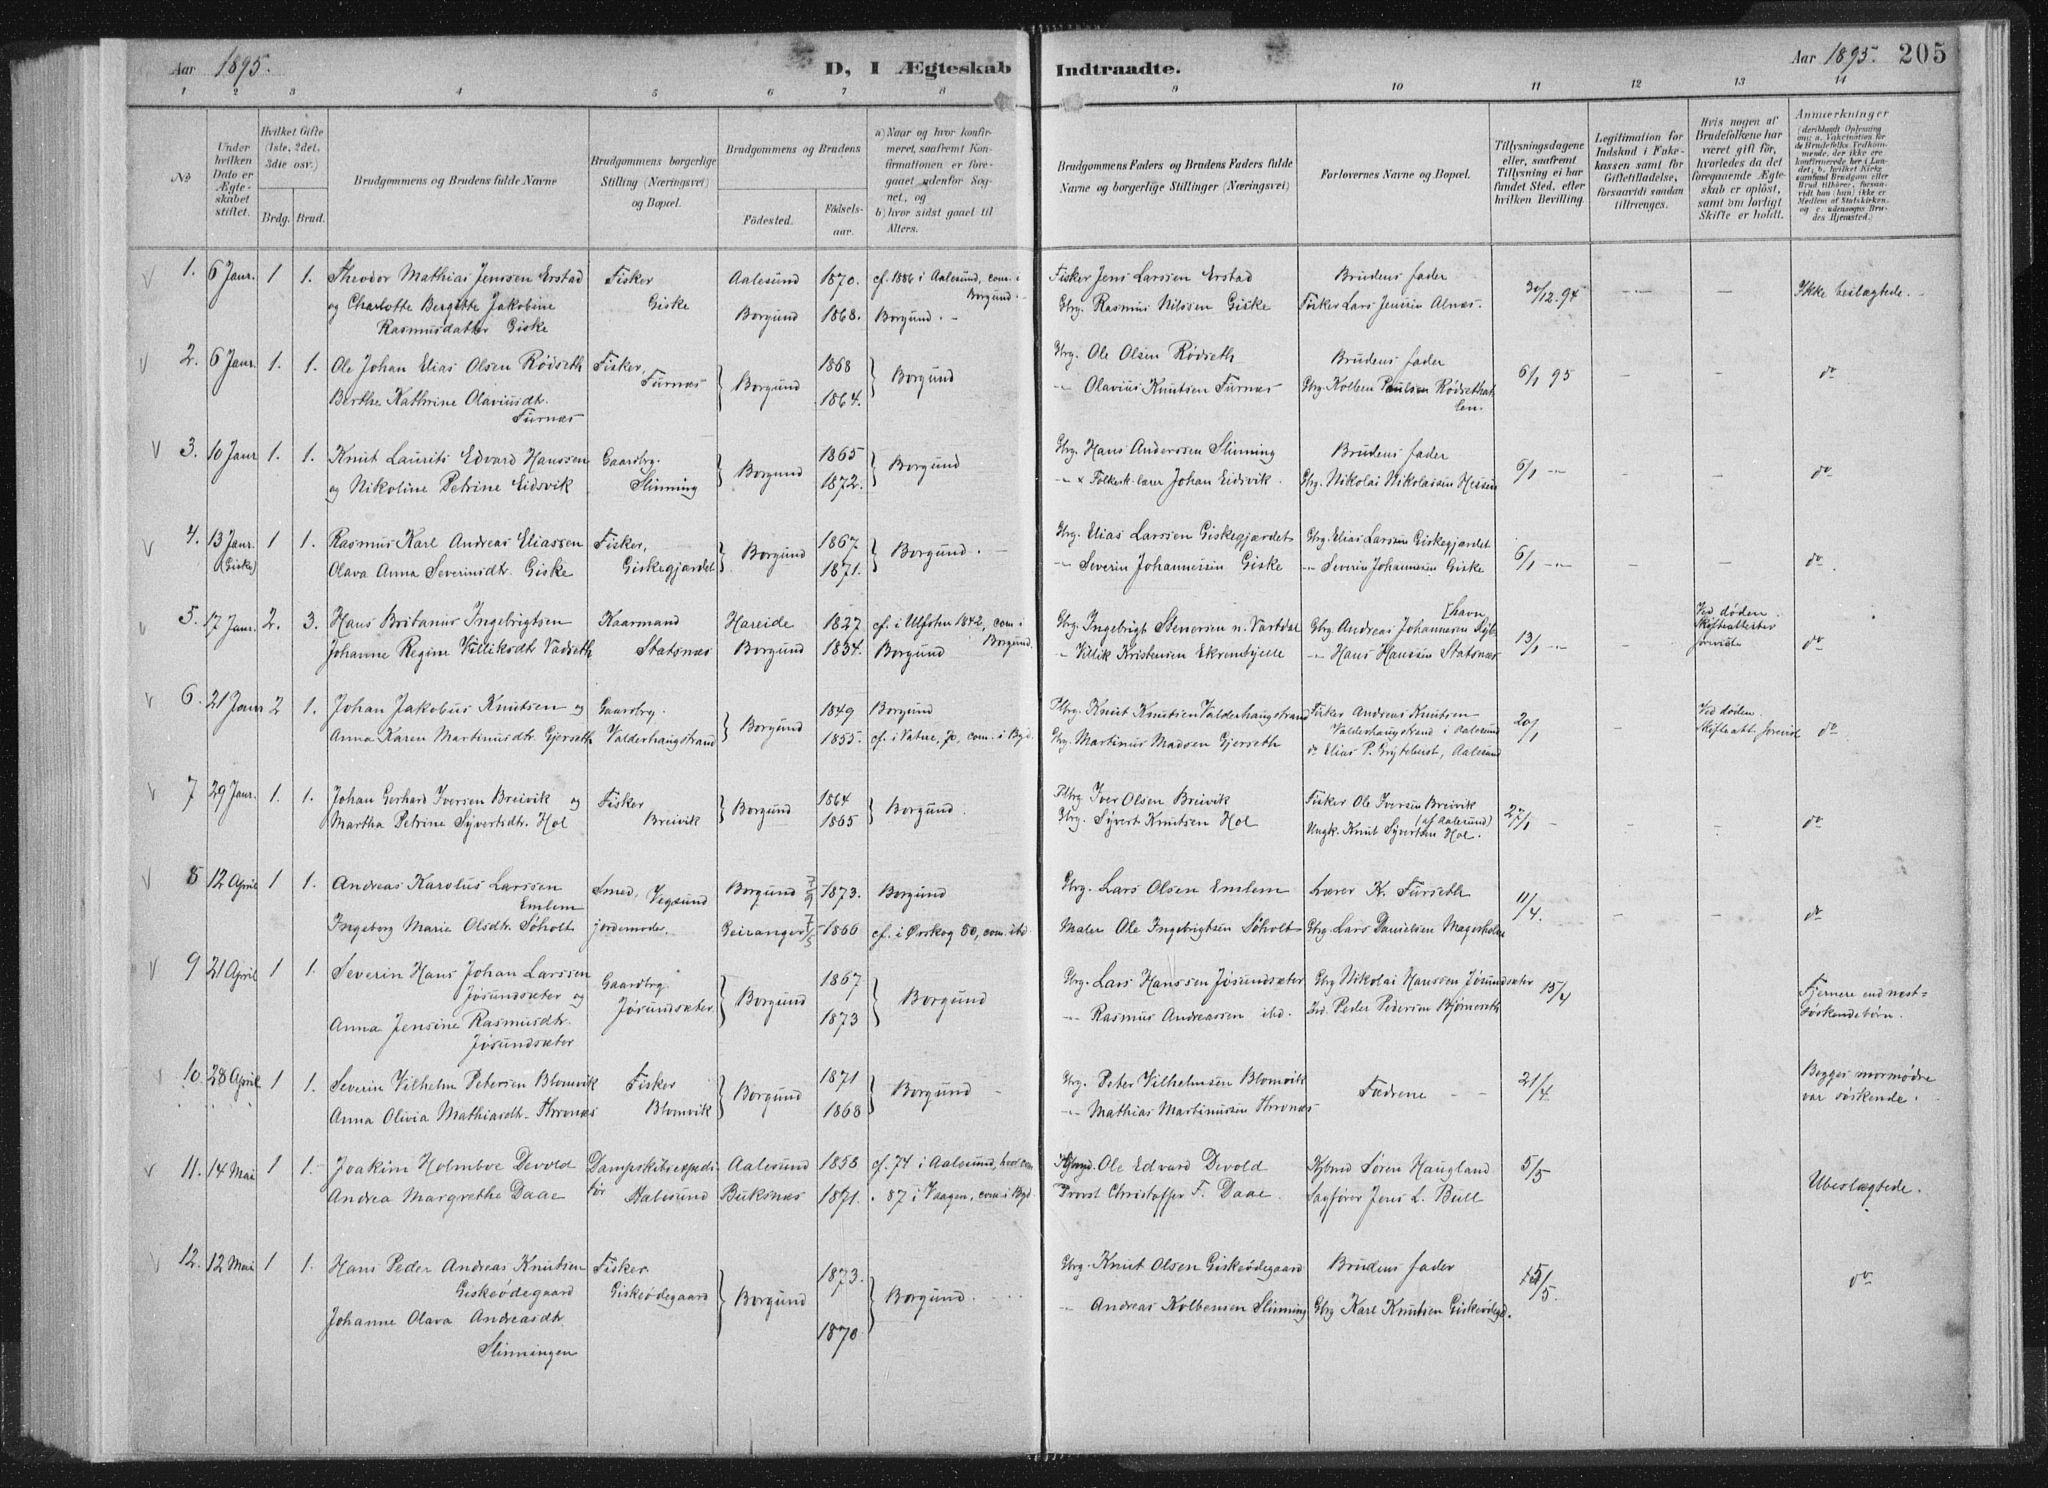 Aar 1895. D, I Ægteskab Indtraadte. Aar 1895. 205
1 2 3 4 5 6 7 8 9 10 11 12 13 14
No.
Under hvilken Dato er Ægteskabet stiftet.
Hvilket Gifte (1ste, 2det, 3die osv.)
Brdg. Brud.
Brudgommens og Brudens fulde Navne
Brudgommens borgerlige Stilling (Næringsvei) og Bopæl.
Brudgommens og Brudens
Fødested. Fødselsaar.
a) Naar og hvor konfirmeret, saafremt Konfirmationen er foregaaet udenfor Sognet, og
b) hvor sidst gaaet til Alters.
Brudgommens Faders og Brudens Faders fulde Navne og borgerlige Stillinger (Næringsvei)
Forlovernes Navne og Bopæl.
Tillysningsdagene eller, saafremt Tillysning ei har fundet Sted, efter hvilken Bevilling.
Legitimation for Indskud i Enkekassen samt for Giftetilladelse, forsaavidt saadan tiltrænges.
Hvis nogen af Brudefolkene har været gift før, hvorledes da det foregaaende Ægteskab er opløst, samt om lovligt Skifte er holdt.
Anmærkninger
(deriblandt Oplysning om: a. Vakcination for de Brudefolks Vedkommende, der ikke ere konfirmerede her i Landet; b. hvilket Kirkesamfund Brudgom eller Brud tilhører, forsavidt han (hun) ikke er Medlem af Statskirken, og c. udensogns Brudes Hjemsted.)
1. 6 Janr. 1 1. Theodor Mathias Jenssen Erstad Fisker Aalesund 1870. cf. 1886 i Aalesund, com. i Borgund. Fisker Jens Larssen Erstad Brudens fader 30/12. 94 Ikke beslægtede.
og Charlotte Bergitte Jakobine Rasmusdatter Giske Giske Borgund 1868. Borgund. Gbrg. Rasmus Nilssen Giske Fisker Lars Jenssen Alnæs
2. 6 Janr. 1. 1. Ole Johan Elias Olsen Rödseth Fisker, Furnæs Borgund 1868 Borgund Gbrg. Ole Olsen Rødseth Brudens fader 6/1 95 - - do
Berthe Kathrine Olaviusdtr. Furnæs 1864. " Olavius Knutsen Furnæs Gbrg. Kolben Paulsen Rödsetho
3. 10 Janr 1. 1. Knut Laurits Edvard Hanssen Gaardbrg. Slinning Borgund 1865 Borgund Gbrg Hans Anderssen Slinning Brudens fader 6/1 - - do
og Nikoline Petrine Eidsvik 1872. Folkesk.lærer Johan Eidsvik. Gbrg. Nikolai Nikolaisen Hessen
4. 13 Janr. (Giske) 1 1. Rasmus Karl Andreas Eliassen Fisker, Giskegjærdet Borgund 1867 Borgund. Gbrg Elias Larssen Giskegjærdet Gbrg. Elias Larssen Giskegjerdet 6/1 - - do
Olava Anna Severinsdtr. Giske 1871. " Severin Johannessen Giske " Severin Johannessen Giske
5. 17 Janr. 2. 3. Hans Britanus Ingebrigtsen Kaarmand Hareide 1827 cf. i Ulfsten 1842, com. i Borgund Gbrg. Ingebrigt Stenersen n. Vartdal Gbrg Andreas Johannesen Nybøhavn 13/1 - Ved døden Skifteattester foreviste do
Johanne Regine Villiksdt Vadseth Statsnæs Borgund 1834. Borgund " Villik Kristensen Ekremsjelle " Hans Hanssen Statsnæs
6. 21 Janr 2 1. Johan Jakobus Knutsen og Gaardbrg. Valderhaugstrand Borgund 1849 Borgund Pbrg. Knut Knutsen Valderhaugstrand Fisker Andreas Knutsen Valderhaugstrand i Aalesund 20/1 Ved døden Skifteatt. forevist do
Anna Karen Martinusdtr. Gjerseth 1855. cf. i Vatne, 70, com. i Bgd. Gbrg. Martinus Madsen Gjerseth do Elias P. Grytehust, Aalesund
7 29 Janr. 1. 1. Johan Gerhard Iversen Breivik og Fisker Breivik Borgund 1864 Borgund. Pbrg Iver Olsen Breivik Fisker Ole Iversen Breivik (af Aalesund) 27/1 - do
Martha Petrine Syvertsdtr. Hol 1865 Gbrg. Syvert Knutsen Hol Ungk. Knut Syvertsen Hol.
8 12 April 1 1. Andreas Karolus Larssen Emlem Smed, Vegsund Borgund 1873. Borgund Gbrg. Lars Olsen Emlem Lærer K. Furseth 11/4. - - do
Ingeborg Marie Olsdtr. Söholt jordemoder. Geiranger 1866 cf. i Ørskog 80, com. ibd Maler Ole Ingebrigtsen Söholt Gbrg. Lars Danielsen Magerholm
9 21 April 1 1. Severin Hans Johan Larssen Jøsundsæter og Gaardbrg. Jøsundsæter. Borgund 1867 Borgund Gbrg. Lars Hanssen Jøsundsæter Gbrg Nikolai Hanssen Jøsundsæter 15/4 Fjernere end næst-söskendebörn.
Anna Jensine Rasmusdtr. Jøsundsæter 1873 " Rasmus Andreassen ibd. Ind. Peder Pedersen Bjørnereth
10. 28 April 1 1. Severin Vilhelm Petersen Blomvik Fisker Blomvik Borgund 1871 Borgund Gbrg. Peter Vilhelmsen Blomvik Fædrene 21/4 Begges mormødre var söskende.
Anna Olivia Mathiasdtr. Thronæs 1868 " Mathias Martinussen Thronæs
11. 14 Mai 1 1. Joakim Holmboe Devold Dampskibsexpeditør Aalesund Aalesund 1858 cf. 74 i Aalesund, Ole Edvard Devold Kjbmd Søren Haugland 5/5 Ubeslægtede.
Andrea Margrethe Daae Buksnæs 1871. " 87 i Vaagen, com. i Bgd. Provst Christoffer F. Daae. Sagfører Jens L. Bull
12. 12 Mai 1 1. Hans Peder Andreas Knutsen Giskeödegaard Fisker. Giskeödegaard Borgund 1873. Borgund. Gbrg. Knut Olsen Giskeödegaard Brudens fader 5/5. do
Johanne Olava Andreasdtr. Slinningen 1870 " Andreas Kolbensen Slinning Gbrg Karl Knutsen Giskeödegd.